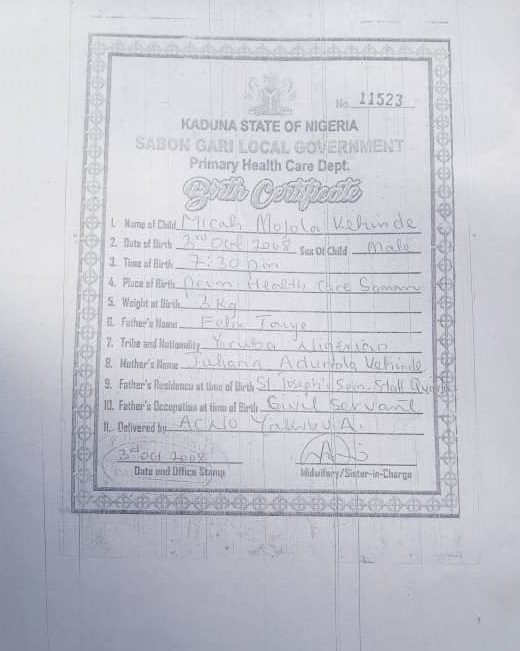 No. 11523
KADUNA STATE OF NIGERIA
SABON GARI LOCAL GOVERNMENT
Primary Health Care Dept.
Birth Certificate
1. Name of Child Micah Molola Kehinde
2. Date of Birth 3rd Oct 2008 Sex Of Child Male
3. Time of Birth 7:30 pm
4. Place of Birth Health Care Samaru
5. Weight at Birth 3 Kg
6. Father's Name Felix Taiye
7. Tribe and Nationality Yoruba Nigerian
8. Mother's Name Juliana Kehinde
9. Father's Residence at time of Birth St. Joseph's Sem. Staff
10. Father's Occupation at time of Birth Civil Servant
11. Delivered by Yakubu A.
3rd Oct 2008
Date and Office Stamp Midwifery/Sister-in-Charge